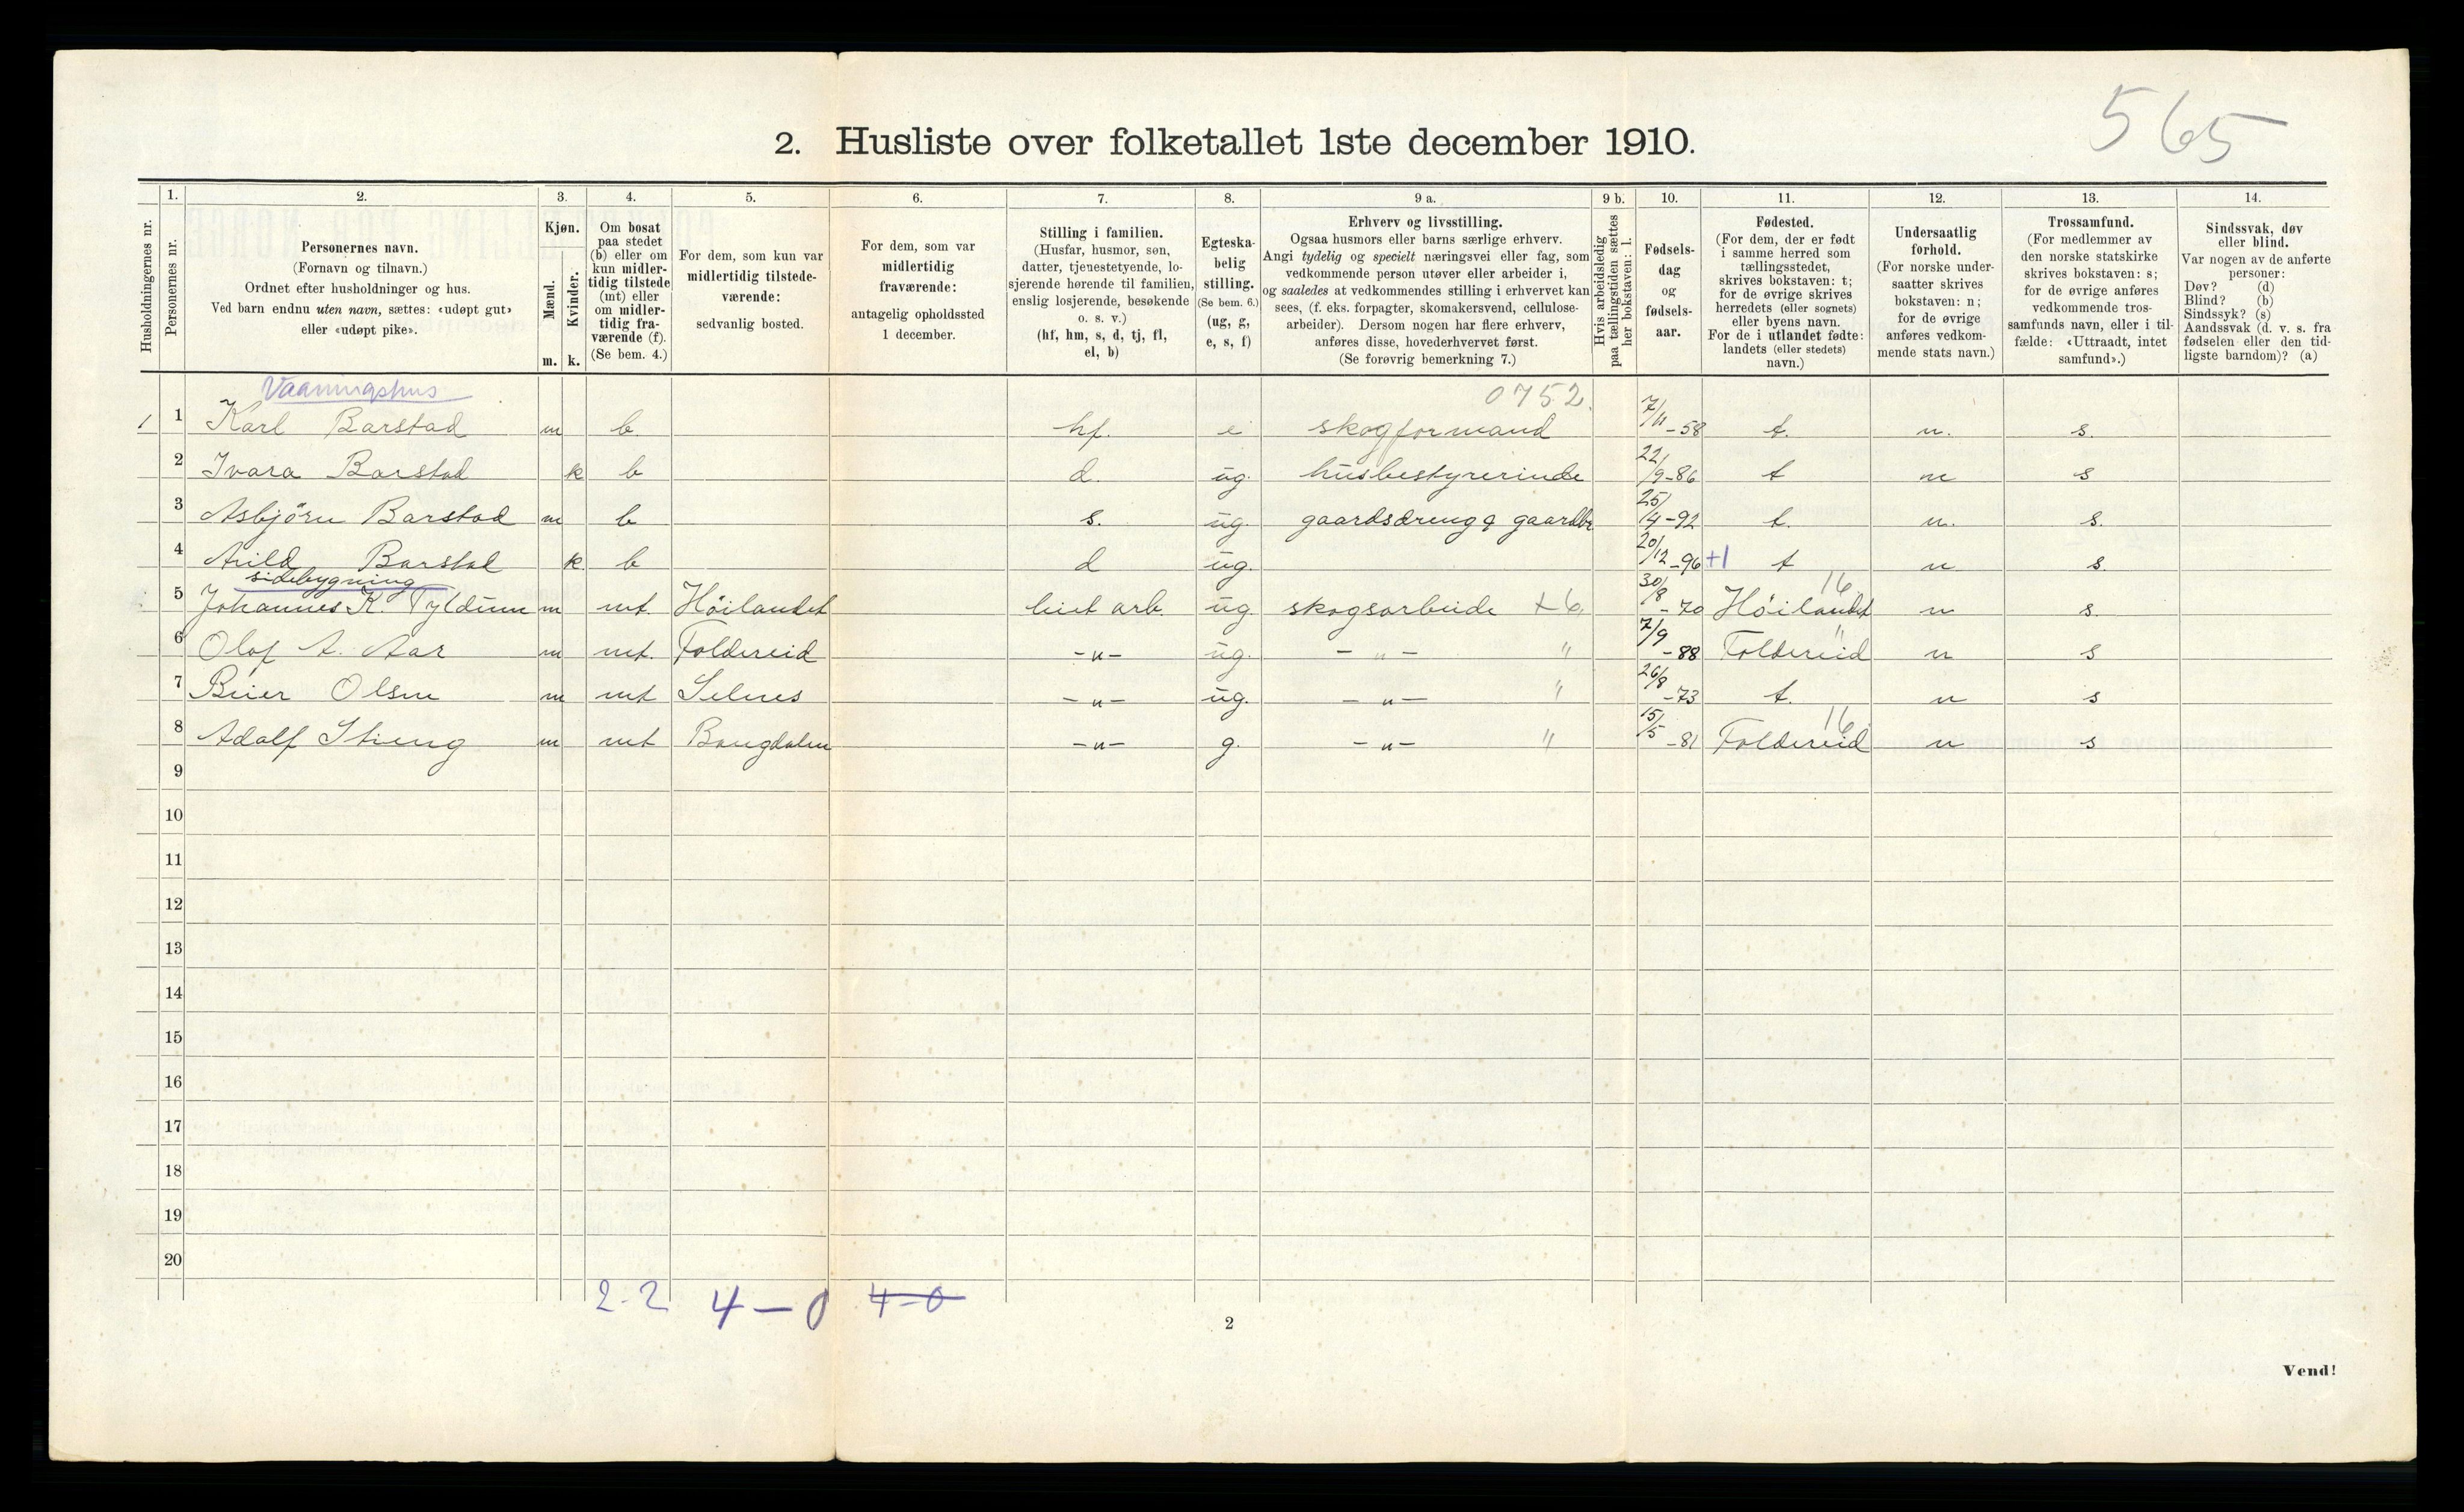 565
2. Husliste over folketallet 1ste december 1910.
Husholdningernes nr.
1.
Personernes nr.
2.
Personernes navn.
(Fornavn og tilnavn.)
Ordnet efter husholdninger og hus.
Ved barn endnu uten navn, sættes: «udøpt gut»
eller «udøpt pike».
3.
Kjøn.
Mænd.
Kvinder.
m. k.
4.
Om bosat
paa stedet
(b) eller om
kun midler-
tidig tilstede
(mt) eller
om midler-
tidig fra-
værende (f).
(Se bem. 4.)
5.
For dem, som kun var
midlertidig tilstede-
værende:
sedvanlig bosted.
6.
For dem, som var
midlertidig
fraværende:
antagelig opholdssted
1 december.
7.
Stilling i familien.
(Husfar, husmor, søn,
datter, tjenestetyende, lo-
sjerende hørende til familien,
enslig losjerende, besøkende
o. s. v.)
(hf, hm, s, d, tj, fl,
el, b)
8.
Egteska-
belig
stilling.
(Se bem. 6.)
(ug, g,
e, s, f)
9 a.
Erhverv og livsstilling.
Ogsaa husmors eller barns særlige erhverv.
Angi tydelig og specielt næringsvei eller fag, som
vedkommende person utøver eller arbeider i,
og saaledes at vedkommendes stilling i erhvervet kan
sees, (f. eks. forpagter, skomakersvend, cellulose-
arbeider). Dersom nogen har flere erhverv,
anføres disse, hovederhvervet først.
(Se forøvrig bemerkning 7.)
9 b.
Hvis arbeidsledig
paa tællingstiden sættes
her bokstaven: l.
10.
Fødsels-
dag
og
fødsels-
aar.
11.
Fødested.
(For dem, der er født
i samme herred som
tællingsstedet,
skrives bokstaven: t;
for de øvrige skrives
herredets (eller sognets)
eller byens navn.
For de i utlandet fødte:
landets (eller stedets)
navn.)
12.
Undersaatlig
forhold.
(For norske under-
saatter skrives
bokstaven: n;
for de øvrige
anføres vedkom-
mende stats navn.)
13.
Trossamfund.
(For medlemmer av
den norske statskirke
skrives bokstaven: s;
for de øvrige anføres
vedkommende tros-
samfunds navn, eller i til-
fælde: «Uttraadt, intet
samfund».)
14.
Sindssvak, døv
eller blind.
Var nogen av de anførte
personer:
Døv? (d)
Blind? (b)
Sindssyk? (s)
Aandssvak (d. v. s. fra
fødselen eller den tid-
ligste barndom)? (a)
Vaaningshus 0752.
1 1 Karl Barstad m b. hf. e skogformand 7/11-58 t. n. s.
2 Ivara Barstad k b d. ug. husbestyrerinde 22/9-86 t n s
3 Asbjörn Barstad m b s. ug. gaardsdreng 25/4-92 t. n. s.
4 Arild Barstad k b d ug. 20/12-96 +1 t n s.
sidebygning 16.
5 Johannes K. Tyldum m mt. Höilandet leiet arb. ug. skogsarbeide +6 30/8-70 Höilandet n s.
6 Olaf A. Aar m mt. Foldereid -"- ug. -"- " 7/9-88 " Foldereid n s
7 Beier Olsen m mt Selnes -"- ug. -"- " 26/8-73 t. n s
8 Adolf Stieng m mt Bangdalen -"- g. -"- " 15/5-81 16. Foldereid n s
9
10
11
12
13
14
15
16
17
18
19
20
2-2 4-0 4-0
2
Vend!